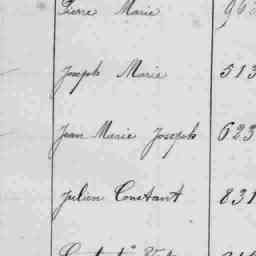 Pierre Marie
Joseph Marie 513
Jean Marie Joseph 623
Julien Constant 831